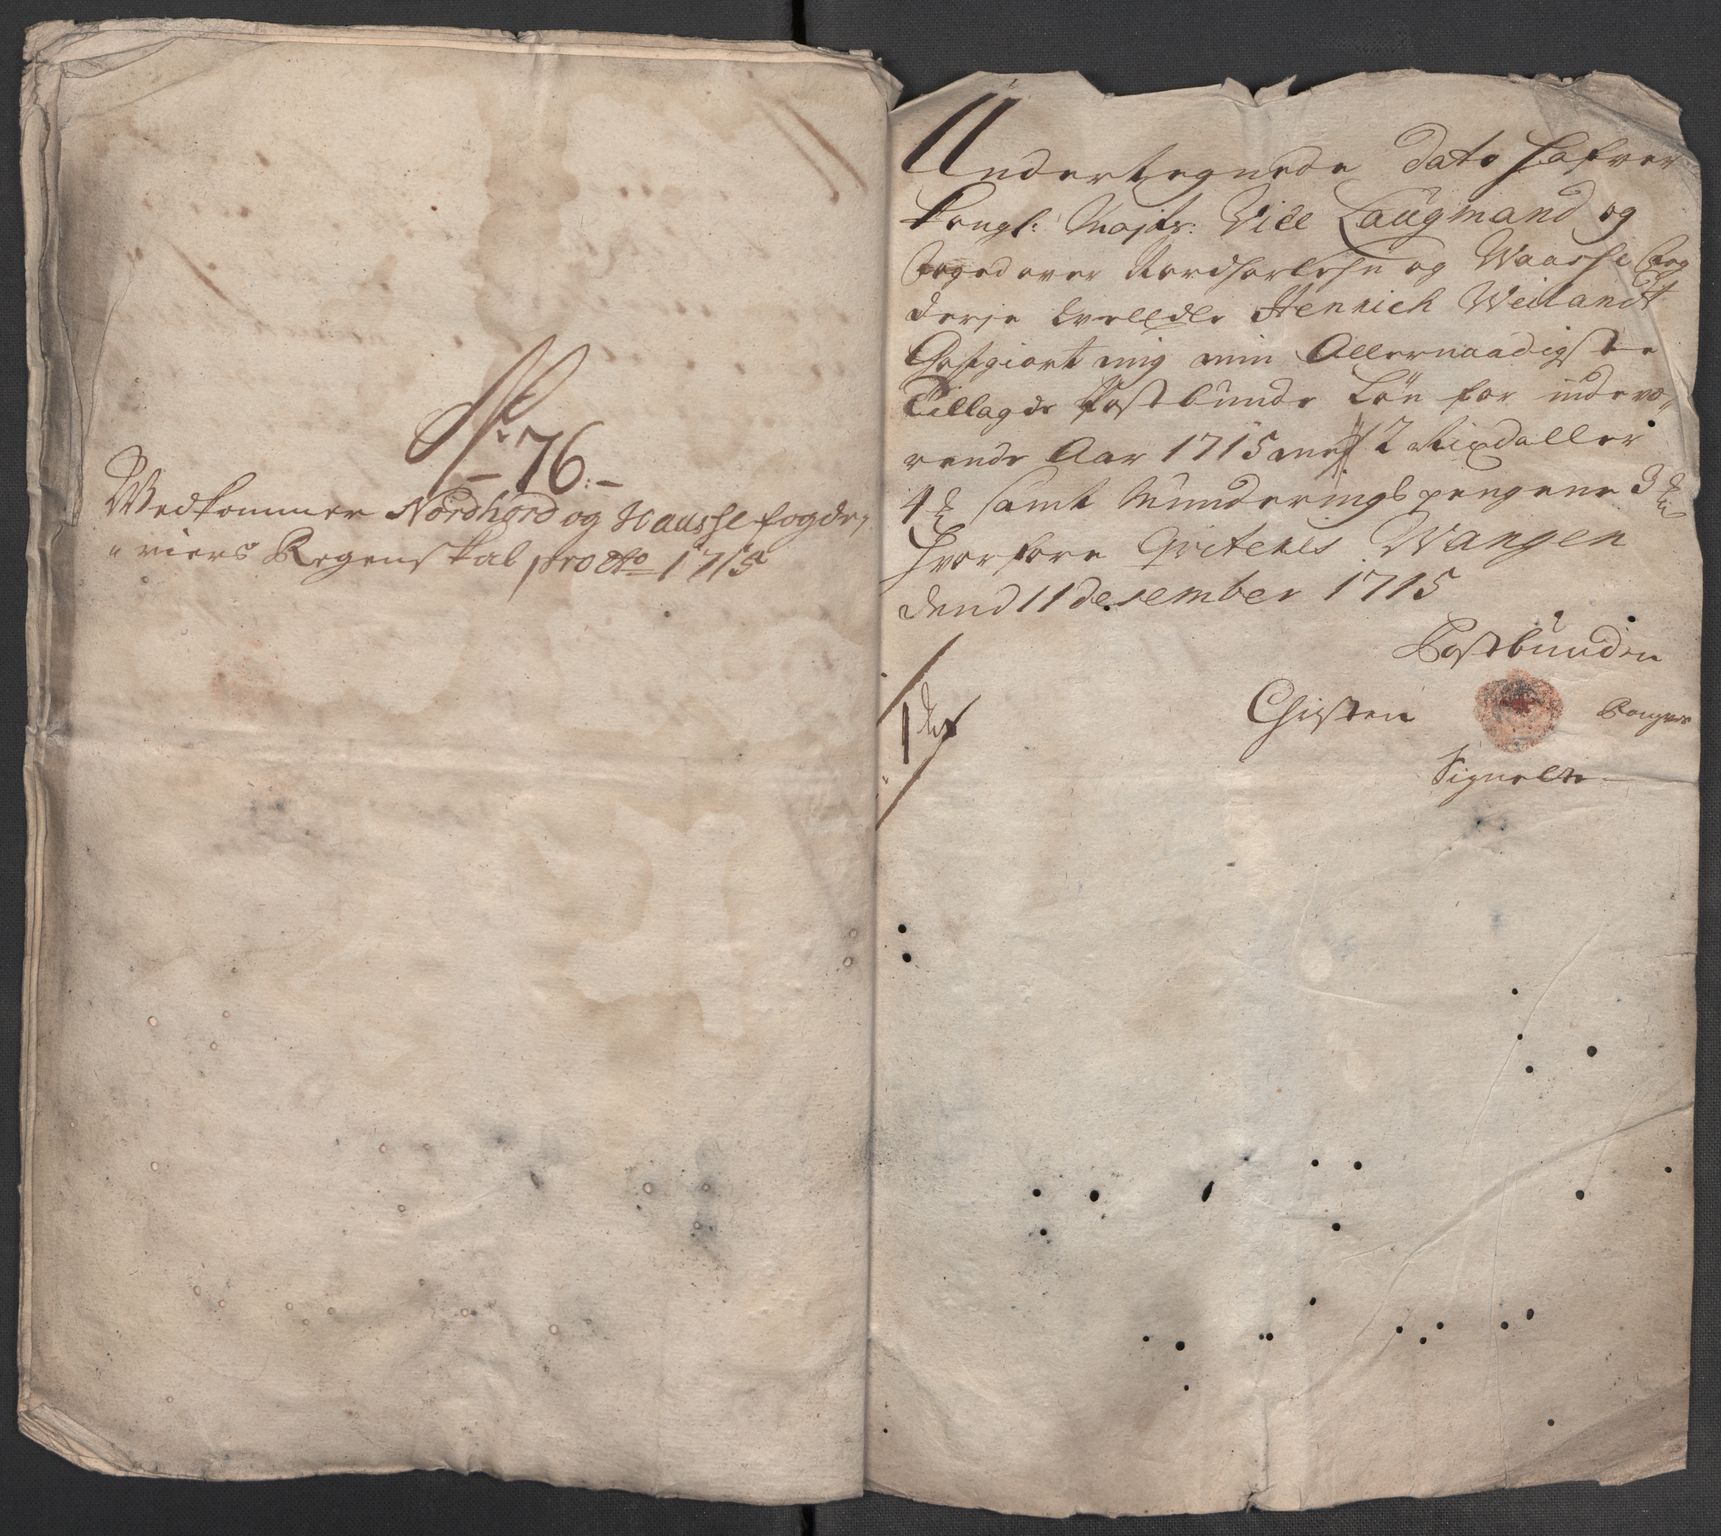 No 76.
Vedkommer Nordhord og Waasse fogde,,
riers Regenskab pro Ao 1715
Undertegnede dato hafver
Kongl: Mayts: Vice Laugmand og
foged over Nordhorlehn og Waasse fog
derje velEdle Henrich Weilandt
Goedgiort mig min Allernaadigste
Tillagde Postbunde Løn for indevæ,,
rende Aar 1715 med 2 Rixdaller
4 samt Munderings pengene 3
hvorfore Qviteris Wangen
dend 11 desember 1715
Postbunden
Christen
Signette